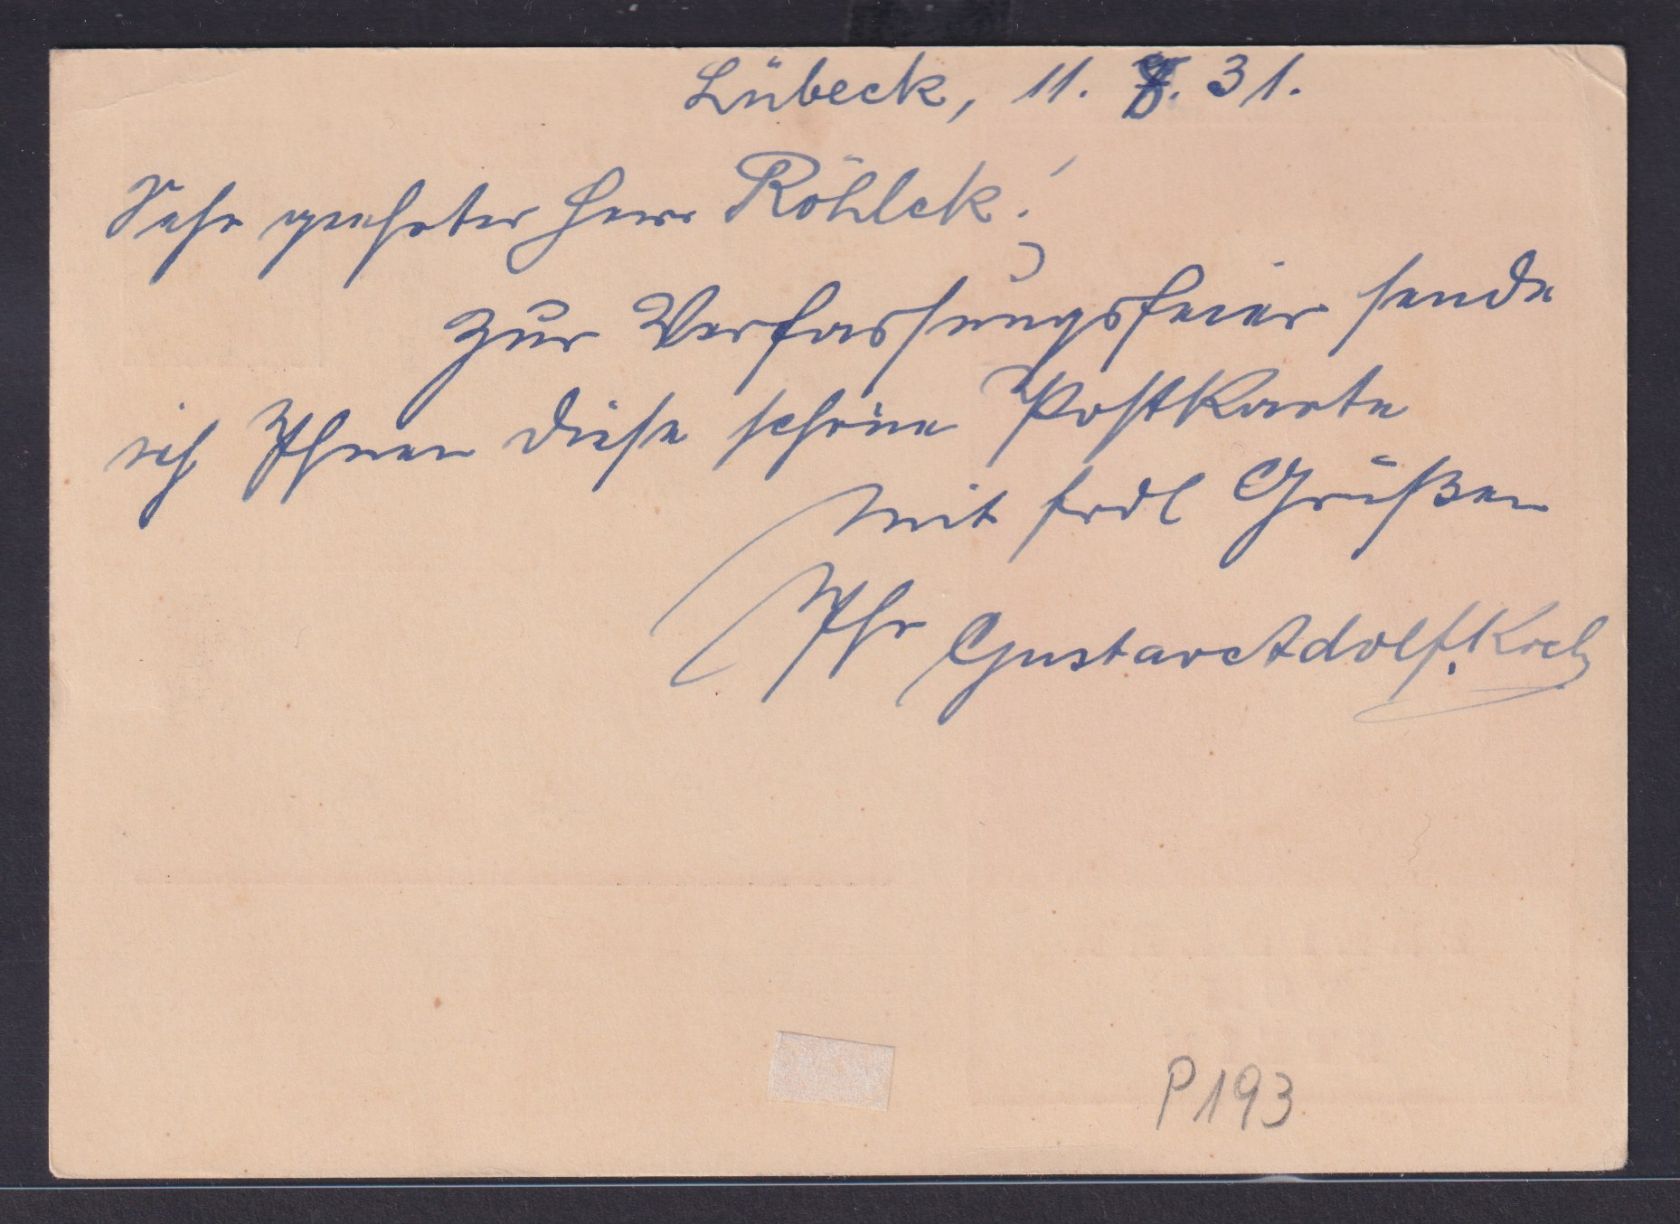 Lübeck, 11. 8. 31.
Sehr geehrter Herr Röhlck!
Zur Verfassungsfeier sende
ich Ihnen diese schöne Postkarte
Mit frdl Grüßen
Ihr Gustav Adolf Koch
P 193